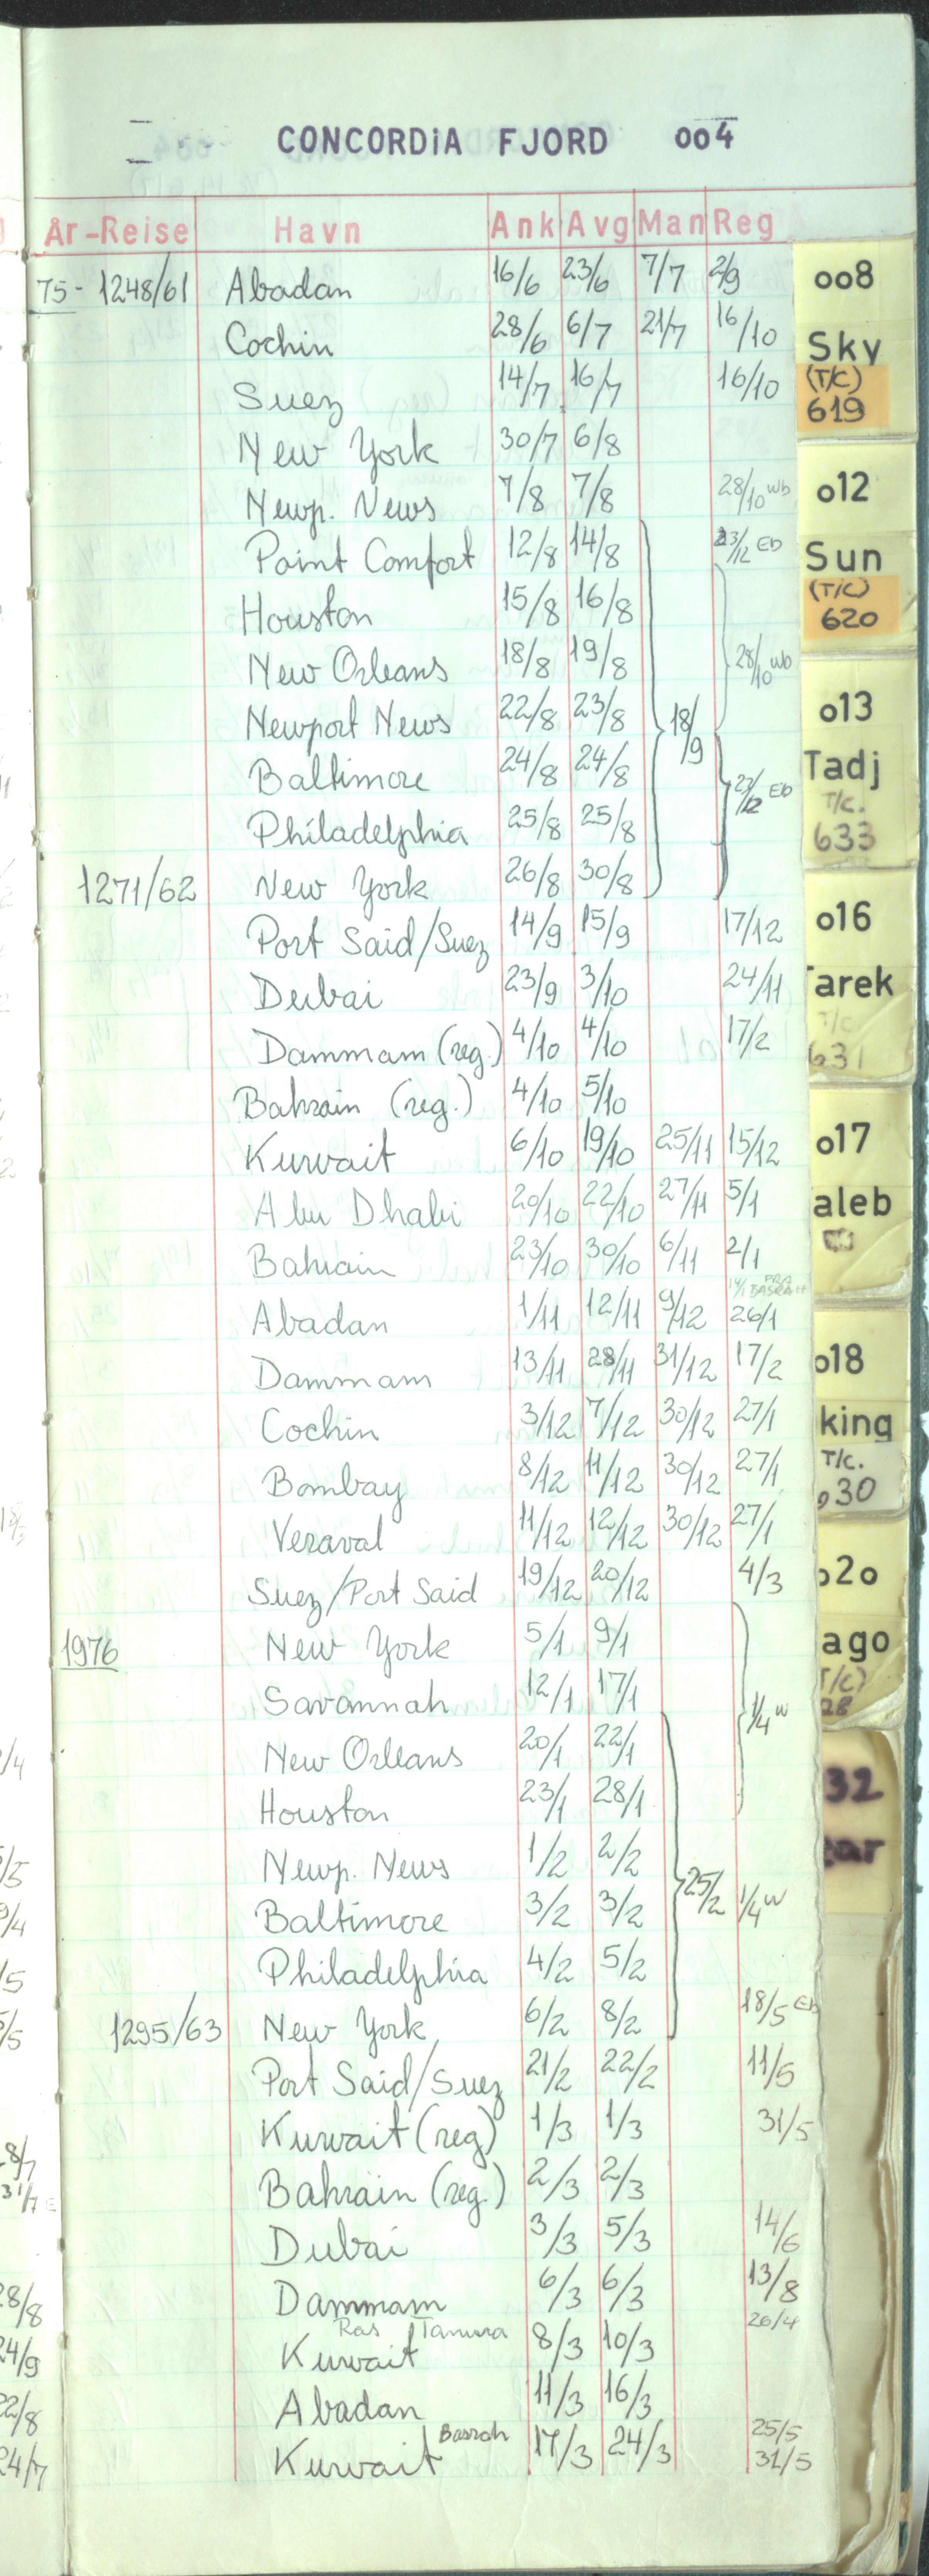 CONCORDiA FJORD oo4
År-Reise Havn Ank Avg Man Reg
75- 1248/61 Abadan 16/6 23/6 7/7 2/9
Cochin 28/6 6/7 21/7 16/10
Suez 14/7 16/7 16/10
New York 30/7 6/8
Newp. News 7/8 7/8 28/10 Wb
Point Comfort 12/8 14/8 23/12 Eb
Houston 15/8 16/8
New Orleans 18/8 19/8 28/10 Wb
Newport News 22/8 23/8 18/9
Baltimore 24/8 24/8 23/12 Eb
Philadelphia 25/8 25/8
1271/62 New York 26/8 30/8
Port Said/Suez 14/9 15/9 17/12
Dubai 23/9 3/10 24/11
Dammam (reg.) 4/10 4/10 17/2
Bahrain (reg.) 4/10 5/10
Kuwait 6/10 19/10 25/11 15/12
Abu Dhabi 20/10 22/10 27/11 5/1
Bahrain 23/10 30/10 6/11 2/1
14/1 FRA BASRAH
Abadan 1/11 12/11 9/12 26/1
Dammam 13/11 28/11 31/12 17/2
Cochin 3/12 7/12 30/12 27/1
Bombay 8/12 11/12 30/12 27/1
Veraval 11/12 12/12 30/12 27/1
Suez/Port Said 19/12 20/12 4/3
1976 New York 5/1 9/1
Savannah 12/1 17/1 1/4 W
New Orleans 20/1 22/1
Houston 23/1 28/1
Newp. News 1/2 2/2
Baltimore 3/2 3/2 25/2 1/4 W
Philadelphia 4/2 5/2
1295/63 New York 6/2 8/2 18/5 Eb
Port Said/Suez 21/2 22/2 11/5
Kuwait (reg) 1/3 1/3 31/5
Bahrain (reg.) 2/3 2/3
Dubai 3/3 5/3 14/6
Dammam 6/3 6/3 13/8
Ras Tanura 26/4
Kuwait 8/3 10/3
Abadan 11/3 16/3
Basrah 25/5
Kuwait 17/3 24/3 31/5
oo8
Sky
(T/C)
619
o12
Sun
(T/C)
620
o13
Tadj
T/C.
633
o16
arek
T/C
631
o17
aleb
o18
king
T/C.
30
o2o
ago
T/C)
28
32
ear